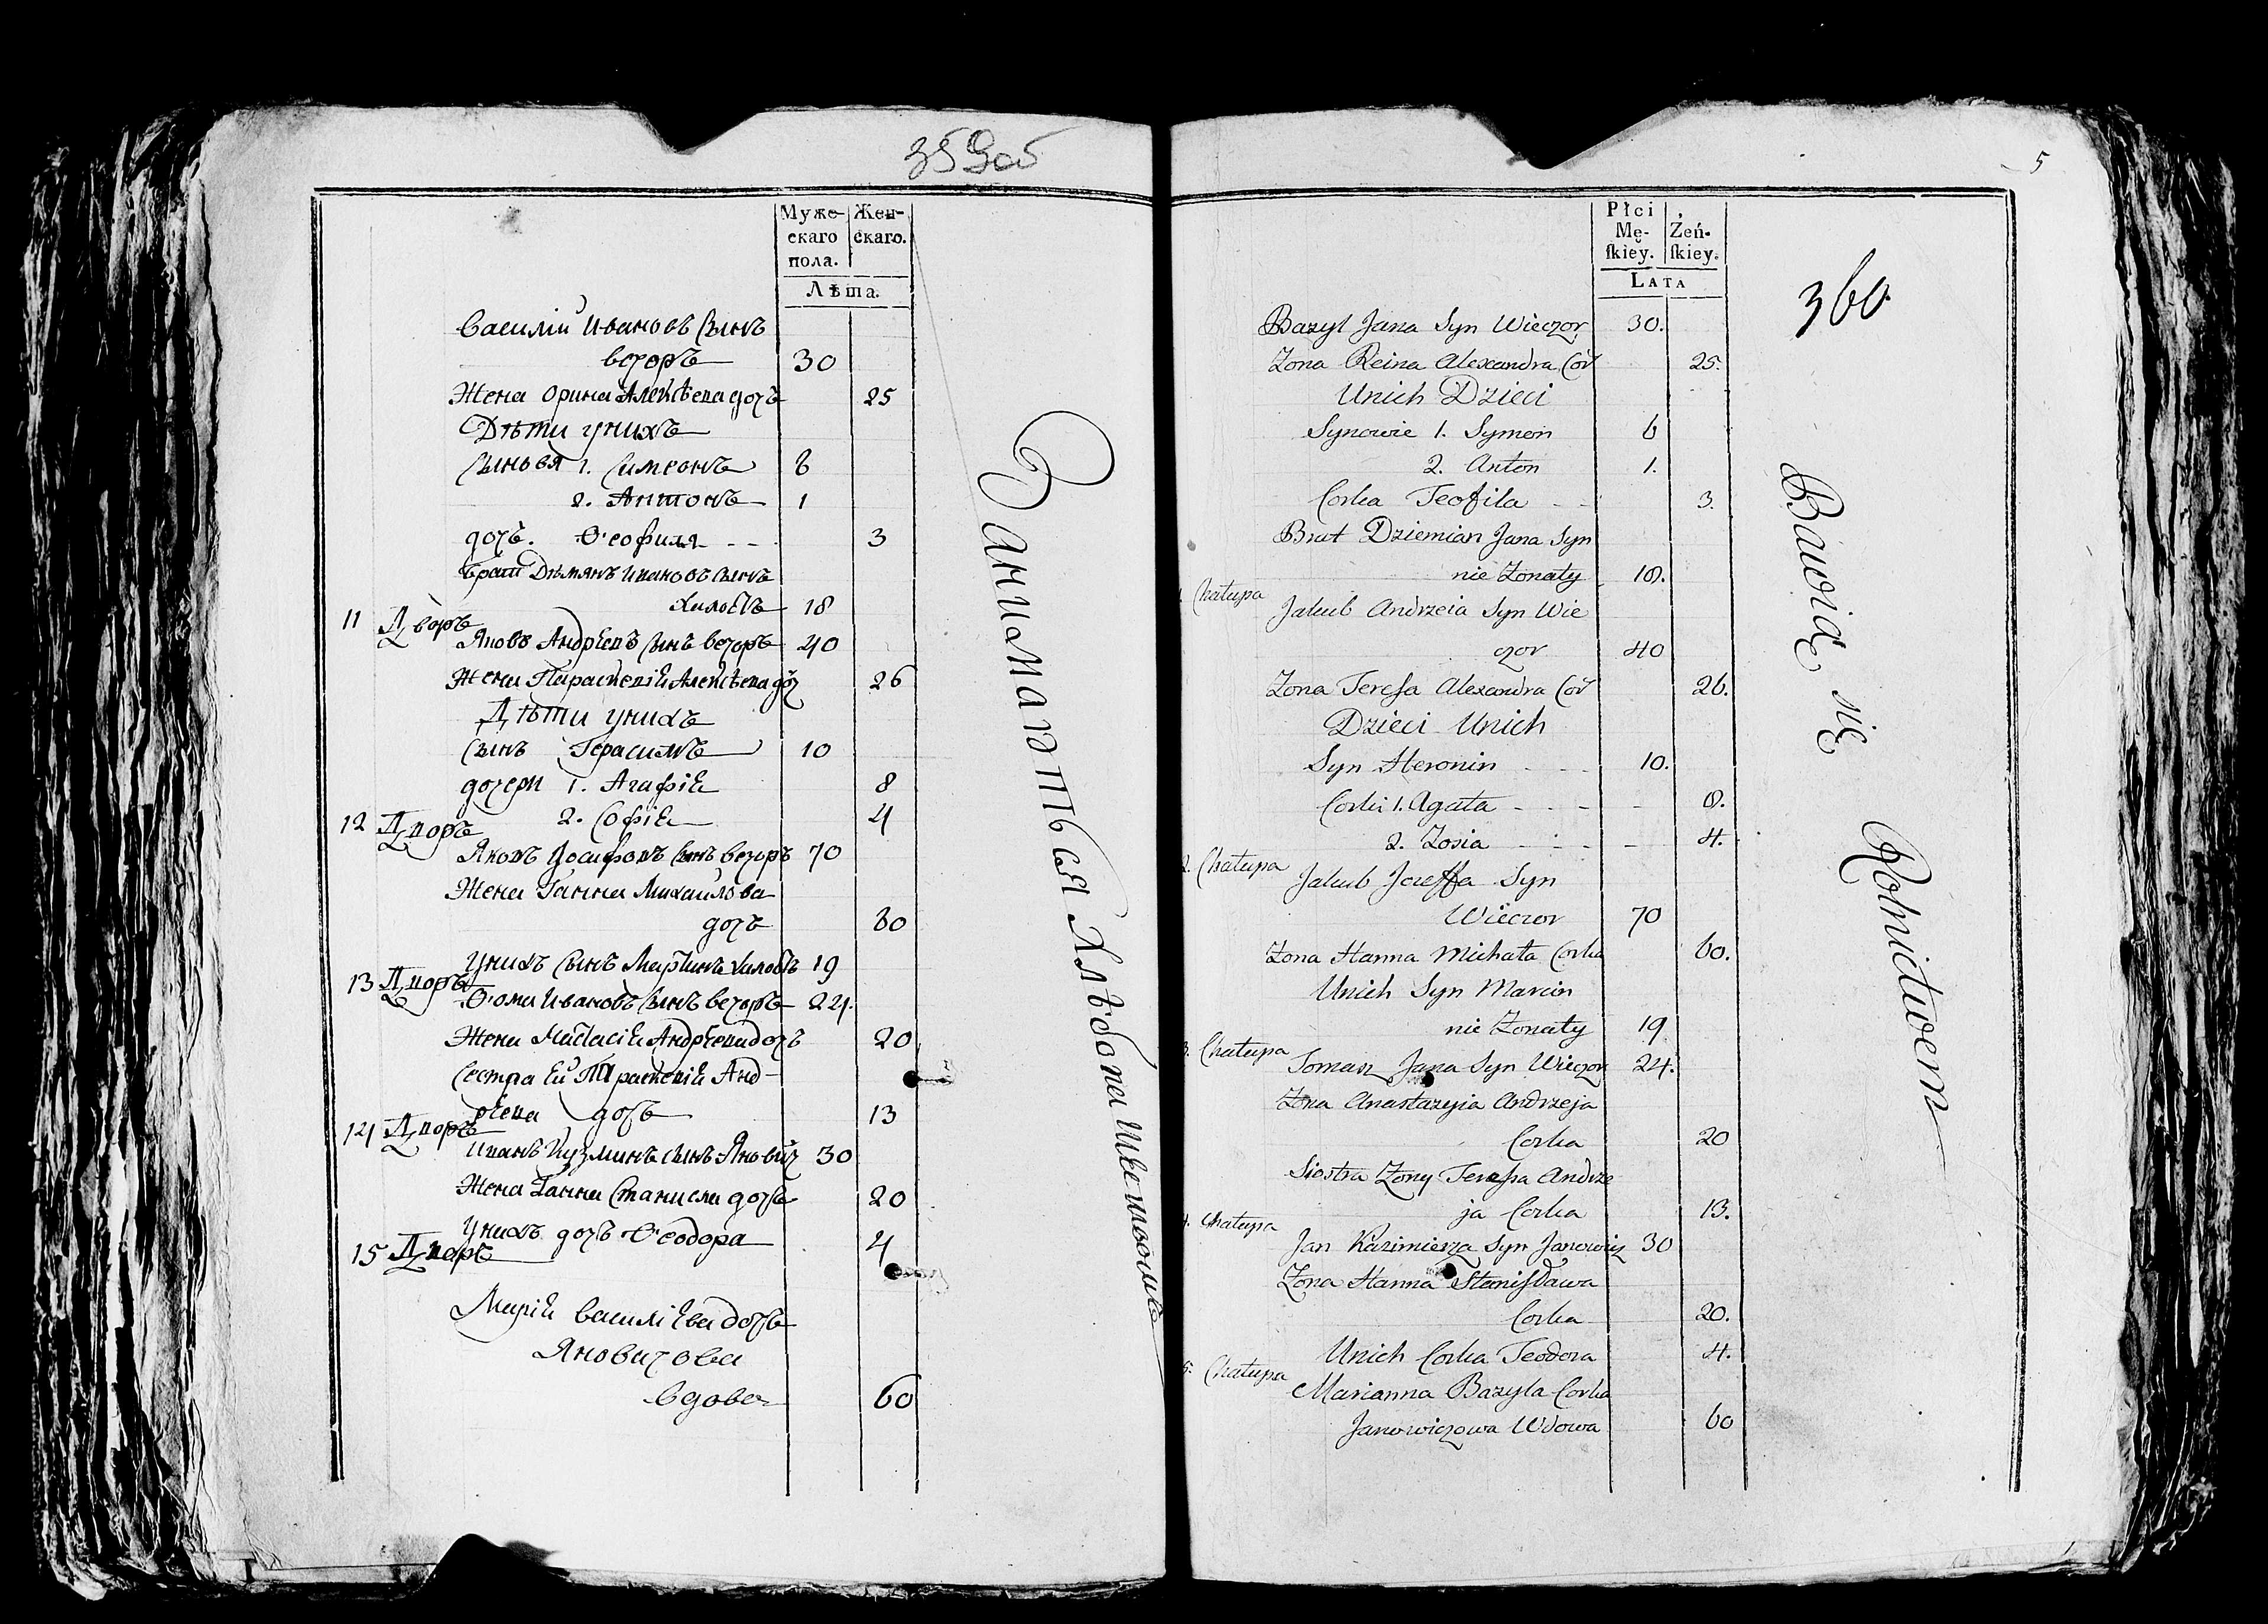 Муже-
скаго
пола.
Жен-
скаго.
Лѣта.
Василій Ивановъ Сынъ
вечоръ 30
Жена Орина Алексѣева дочъ 25
Дѣти унихъ
Сыновя 1. Симеонъ 6
2. Антонъ 1
дочъ. Ѳеофиля 3
братъ Дѣмянъ Ивановъ Сынъ
Холостъ 18
11 Дворъ
Яковъ Андрѣевъ Сынъ вечоръ 40
Жена Параскевія Алексѣева доч 26
Дѣти унихъ
Сынъ Герасимъ 10
дочери 1. Агафія 8
2. Софія 4
12 Дворъ
Яковъ Іосифовъ Сынъ вечоръ 70
Жена Ганна Михайлова
дочъ 60
унихъ Сынъ Мартинъ холостъ 19
13 Дворъ
Ѳома Ивановъ Сынъ вечоръ 24.
Жена Настасія Андрѣева дочъ 20
Сестра Ей Параскевія Анд-
рѣева дочъ 13
14 Дворъ
Иванъ Кузминъ Сынъ Янович 30
Жена Ганна Станисла дочъ 20
Унихъ дочъ Ѳеодора 4
15 Дворъ
Марія василіева дочъ
Яновичова
вдова 60
Занимаются Хлѣбопашествомъ
5
Płci
Mę-
ſkiey.
Żeń-
ſkiey.
LATA
360
Bazyl Jana Syn Wieczor 30.
Zona Reina Alexandra Cor 25.
Unich Dzieci
Synowie 1. Symon 6
2. Anton 1.
Corka Teofila 3.
Brat Dziemian Jana Syn
nie Zonaty 18.
Chałupa
Jakub Andrzeia Syn Wie
czor 40
Zona Teresa Alexandra Cor 26.
Dzieci Unich
Syn Heronin 10.
Corki 1. Agata 8.
2. Zosia 4.
2. Chałupa
Jakub Jozeffa Syn
Wieczor 70
Zona Hanna Michała Corka 60.
Unich Syn Marcin
nie Zonaty 19
3. Chałupa
Tomasz Jana Syn Wieczor 24.
Zona Anastazyia Andrzeja
Corka 20
Siostra Zony Teressa Andrze
ja Corka 13.
4. Chałupa
Jan Kazimierza Syn Janowicz 30
Zona Hanna Stanisława
Corka 20.
Unich Corka Teodora 4.
5. Chałupa
Marianna Bazyla Corka
Janowiczowa Wdowa 60
Bawią się Rolnictwem